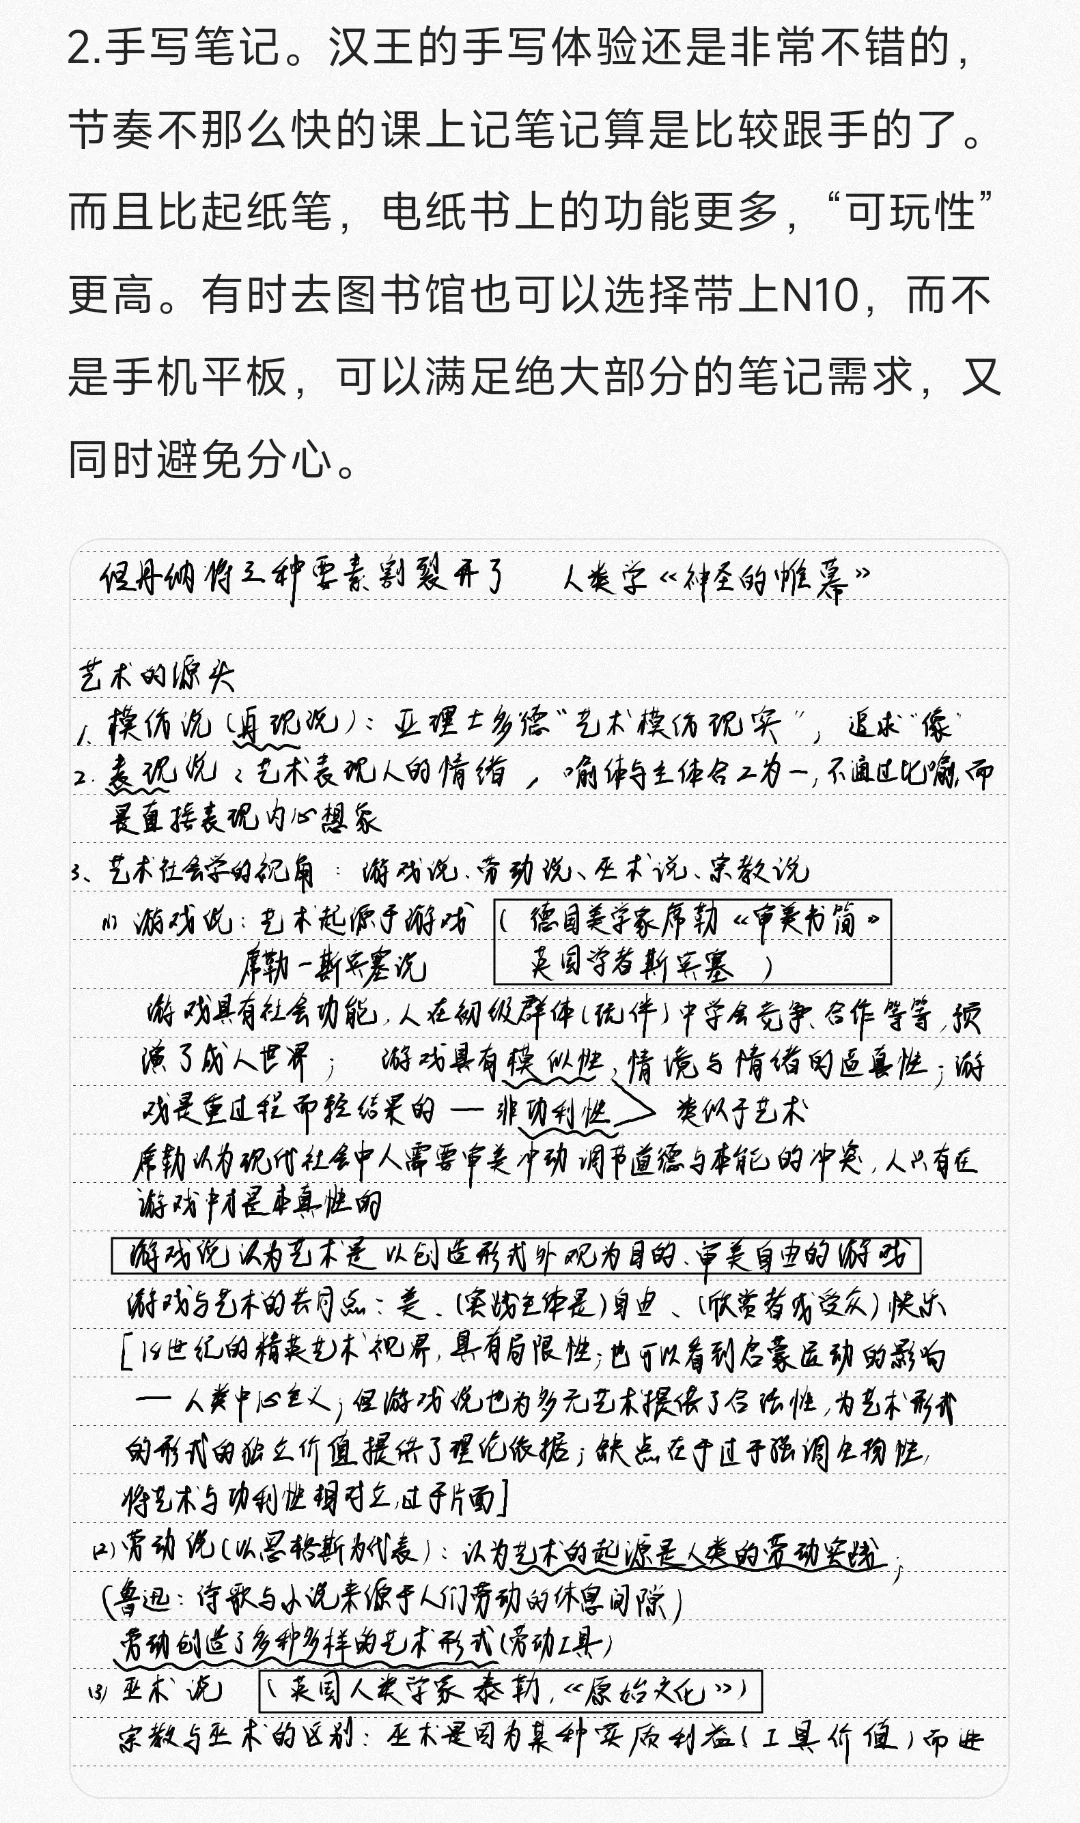 2.手写笔记。汉王的手写体验还是非常不错的，
节奏不那么快的课上记笔记算是比较跟手的了。
而且比起纸笔，电纸书上的功能更多，“可玩性”
更高。有时去图书馆也可以选择带上N10，而不
是手机平板，可以满足绝大部分的笔记需求，又
同时避免分心。
但丹纳将三种要素割裂开了 人类学《神圣的帷幕》
艺术的源头
1. 模仿说（再现说）：亚理士多德“艺术模仿现实”，追求“像”
2. 表现说：艺术表现人的情绪，喻体与主体合二为一，不通过比喻，而
是直接表现内心想象
3、艺术社会学的视角：游戏说、劳动说、巫术说、宗教说
(1) 游戏说：艺术起源于游戏（德国美学家席勒《审美书简》
席勒—斯宾塞说 英国学者斯宾塞）
游戏具有社会功能，人在初级群体（玩伴）中学会竞争、合作等等，预
演了成人世界； 游戏具有模似性，情境与情绪的逼真性；游
戏是重过程而轻结果的 — 非功利性 > 类似于艺术
席勒认为现代社会中人需要审美冲动调节道德与本能的冲突，人只有在
游戏中才是本真性的
游戏说认为艺术是以创造形式外观为目的、审美自由的游戏
游戏与艺术的共同点：美、（实践主体是）自由、（欣赏者或受众）快乐
[18世纪的精英艺术视界，具有局限性；也可以看到启蒙运动的影响
— 人类中心主义；但游戏说也为多元艺术提供了合法性，为艺术形式
的形式的独立价值提供了理论依据；缺点在于过于强调生物性，
将艺术与功利性相对立，过于片面]
(2) 劳动说（以恩格斯为代表）：认为艺术的起源是人类的劳动实践；
（鲁迅：诗歌与小说来源于人们劳动的休息间隙）
劳动创造了多种多样的艺术形式（劳动工具）
(3) 巫术说 （英国人类学家泰勒，《原始文化》）
宗教与巫术的区别：巫术是因为某种实质利益（工具价值）而进